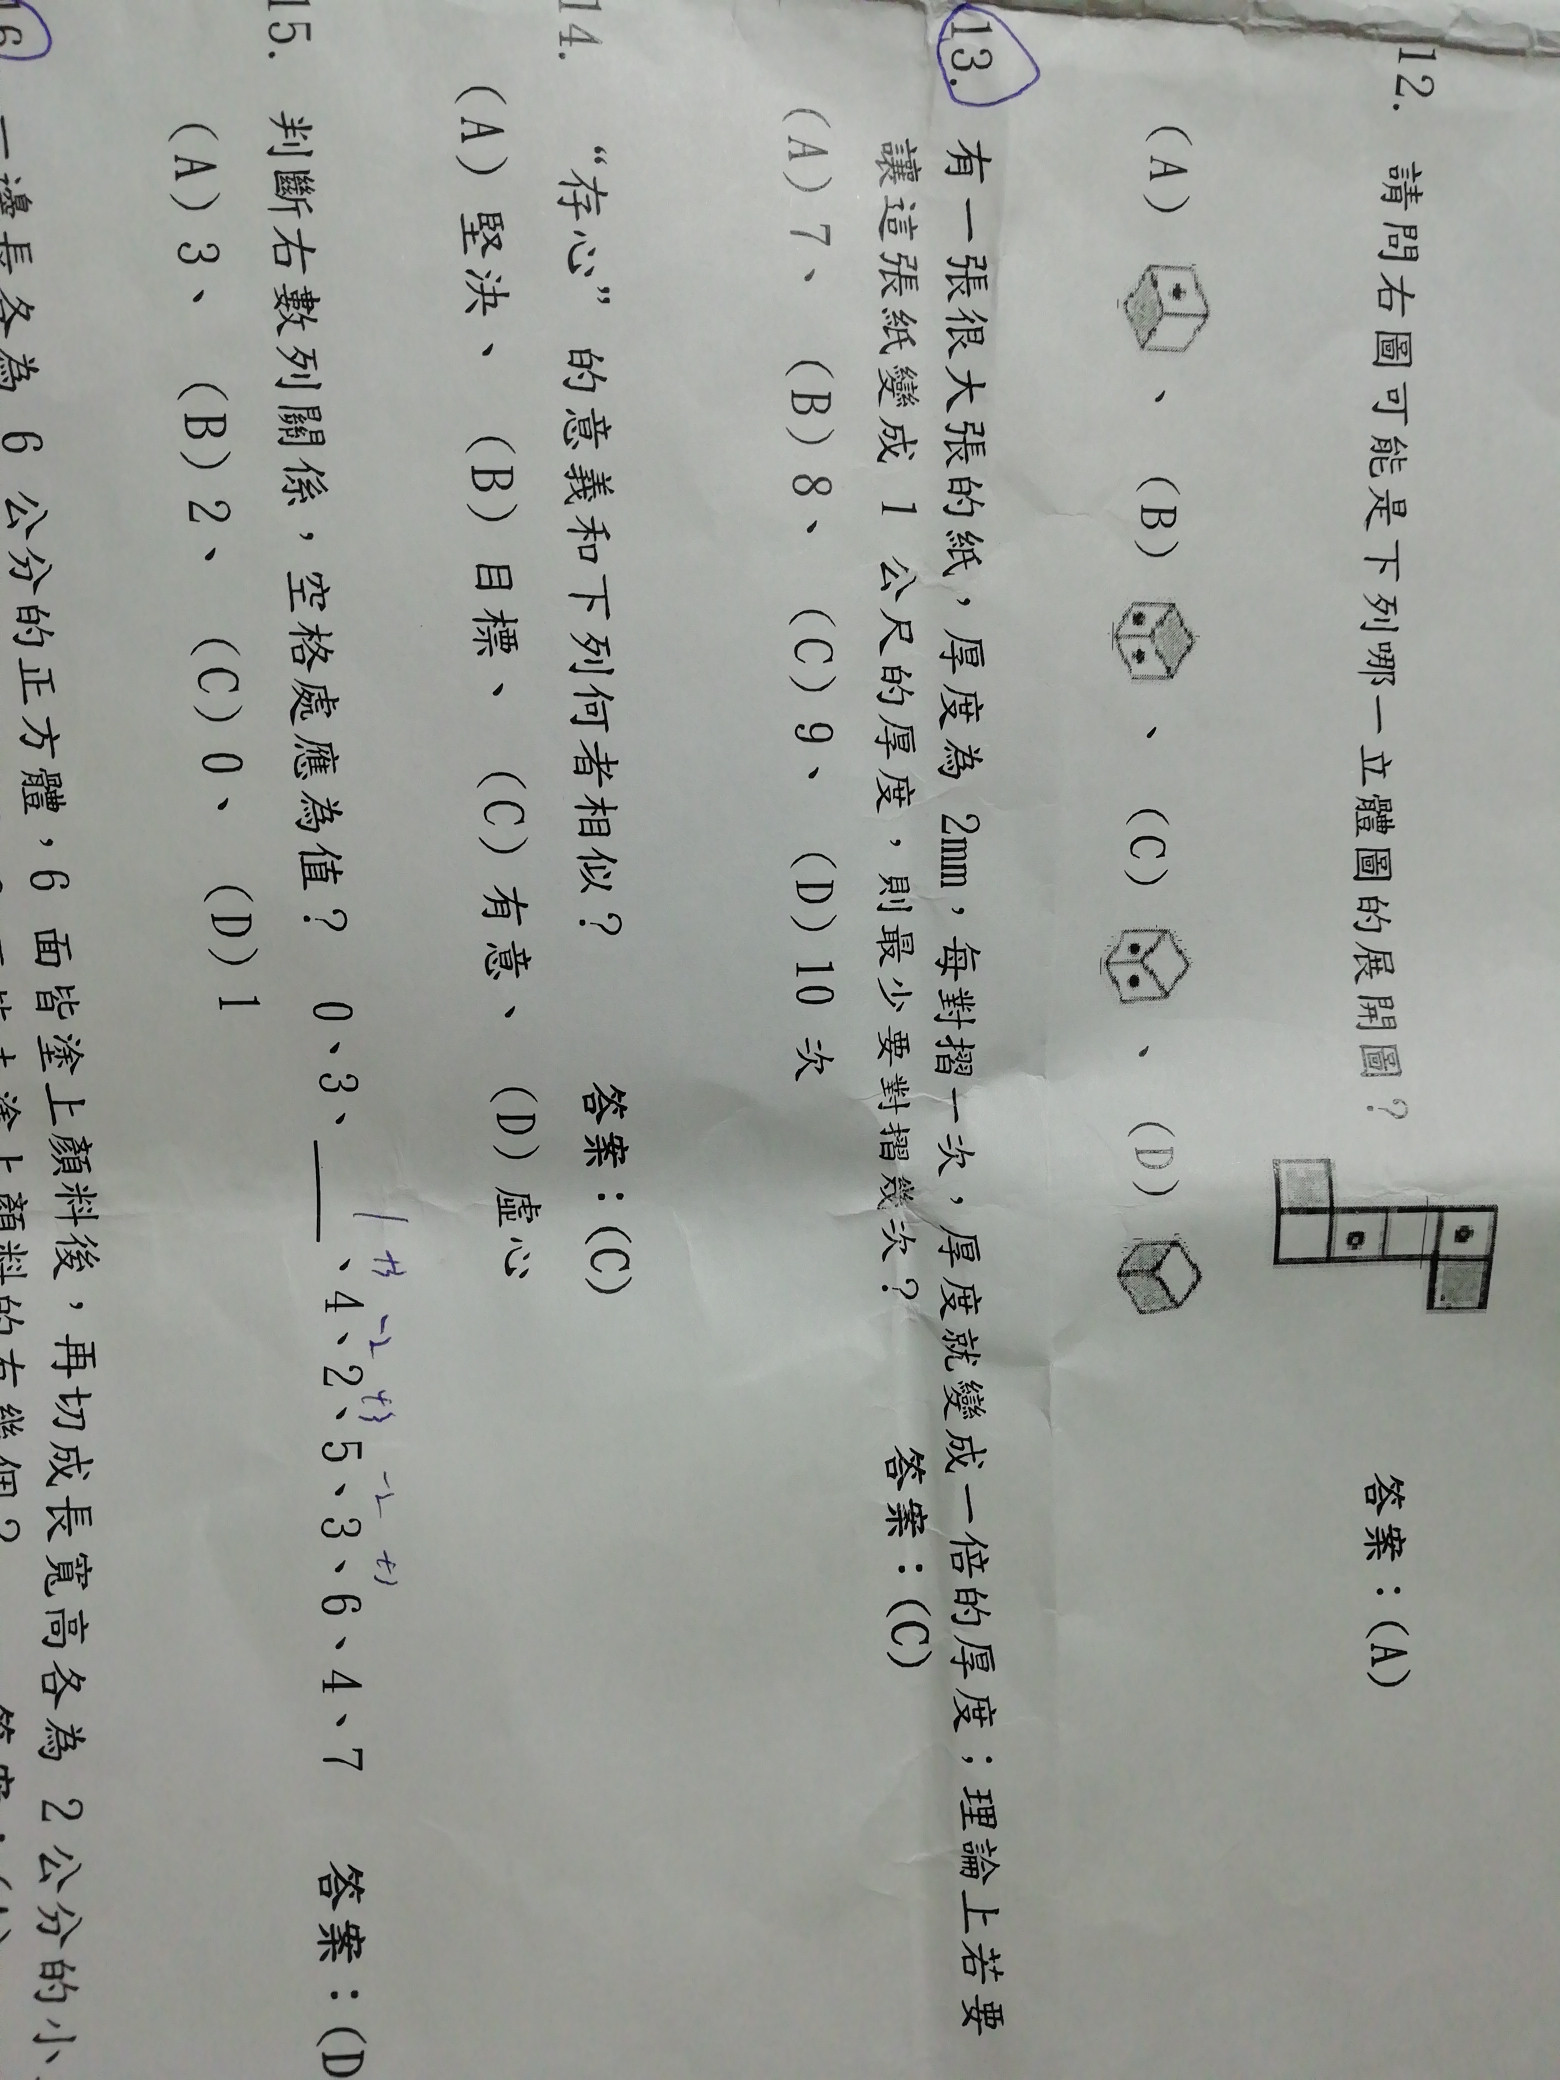 12. 請問右圖可能是下列哪一立體圖的展開圖？ 答案：(A)
(A) 、 (B) 、 (C) 、 (D)
13. 有一張很大張的紙，厚度為 2mm，每對摺一次，厚度就變成一倍的厚度；理論上若要
讓這張紙變成 1 公尺的厚度，則最少要對摺幾次？ 答案：(C)
(A)7、 (B)8、 (C)9、 (D)10 次
14. “存心”的意義和下列何者相似？ 答案：(C)
(A)堅決、 (B)目標、 (C)有意、 (D)虛心
1 +3 -2 +3 -2 +3
15. 判斷右數列關係，空格處應為值？ 0、3、____、4、2、5、3、6、4、7 答案：(D
(A)3、 (B)2、 (C)0、 (D)1
16 一邊長各為 6 公分的正方體，6 面皆塗上顏料後，再切成長寬高各為 2 公分的小
塗上顏料的有幾個？ 答案：